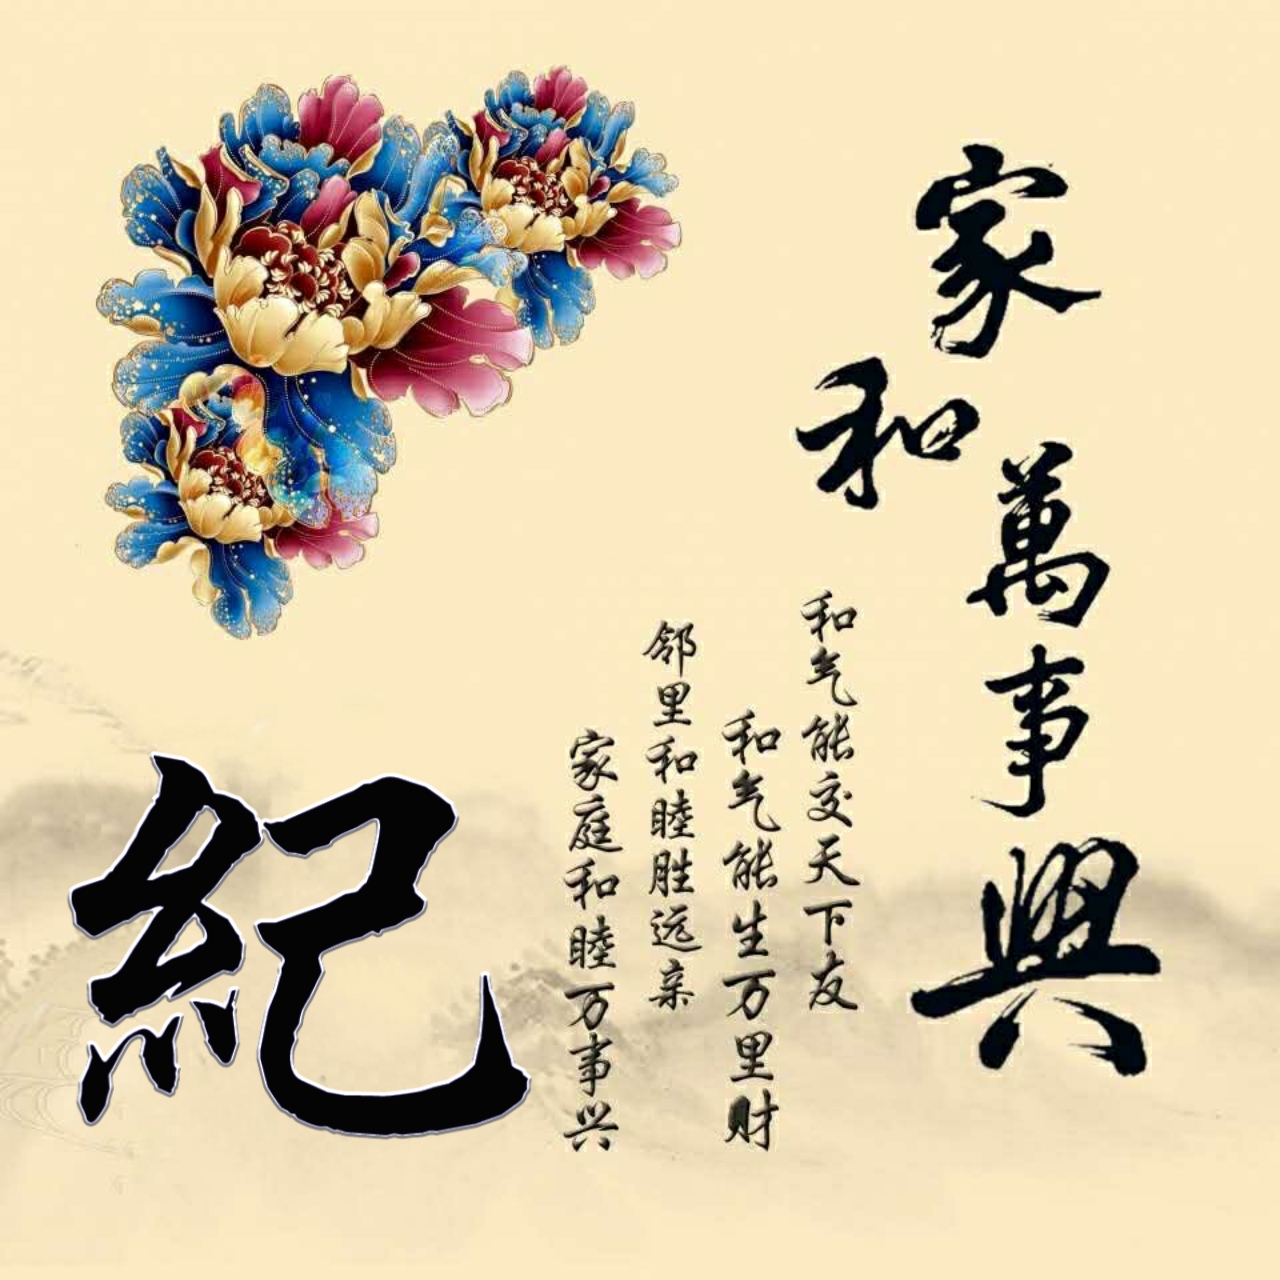 家和萬事興
和气能交天下友
和气能生万里财
邻里和睦胜远亲
家庭和睦万事兴
紀